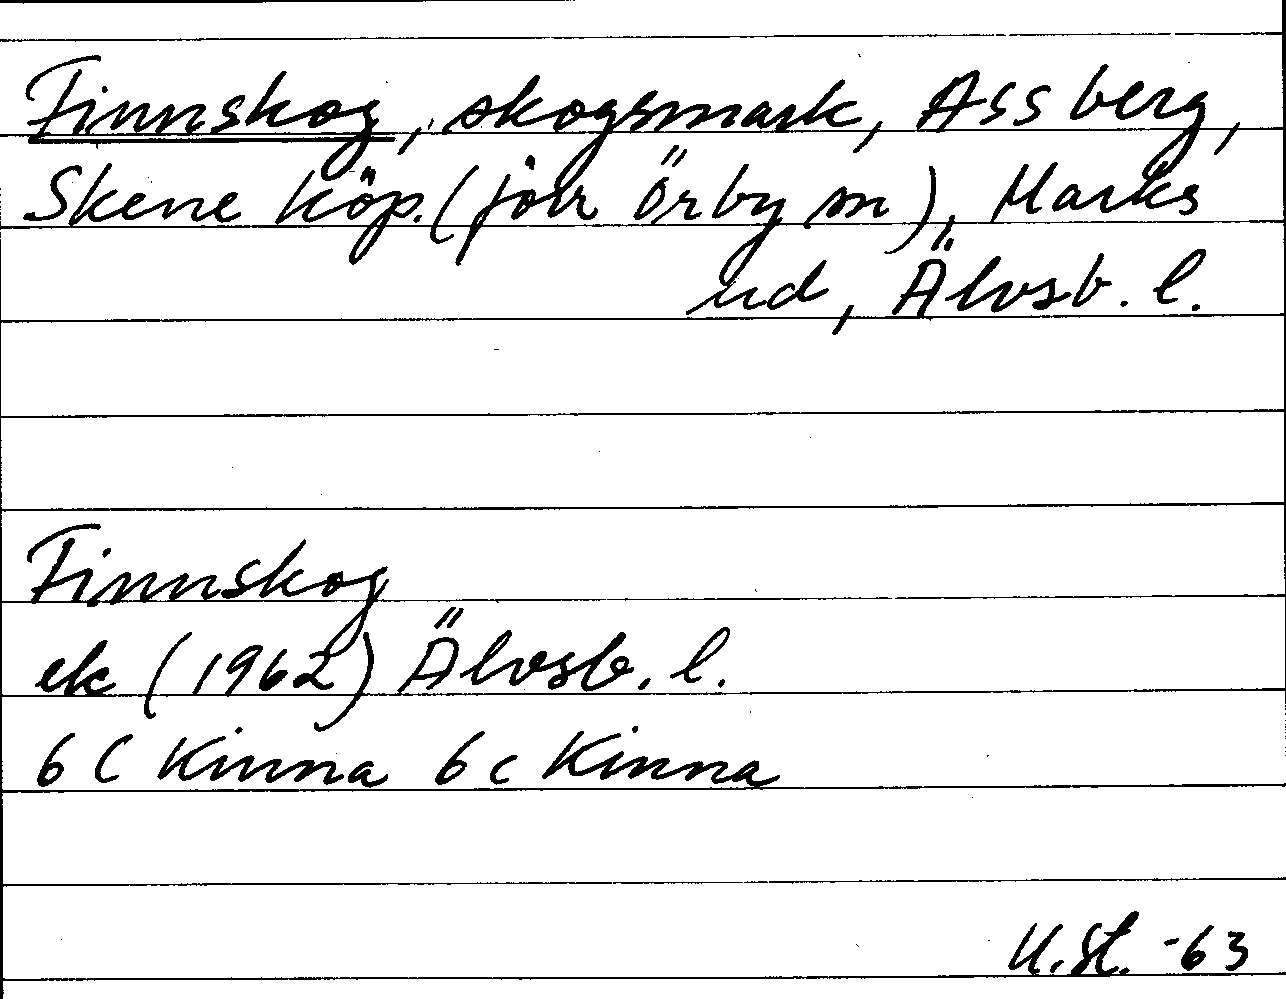 Finnskog, skogsmark, Assberg,
Skene köp. (förr Örby sn), Marks
hd, Älvsb. l.
Finnskog
ek (1962) Älvsb. l.
6 C Kinna 6 c Kinna
U. St. -63